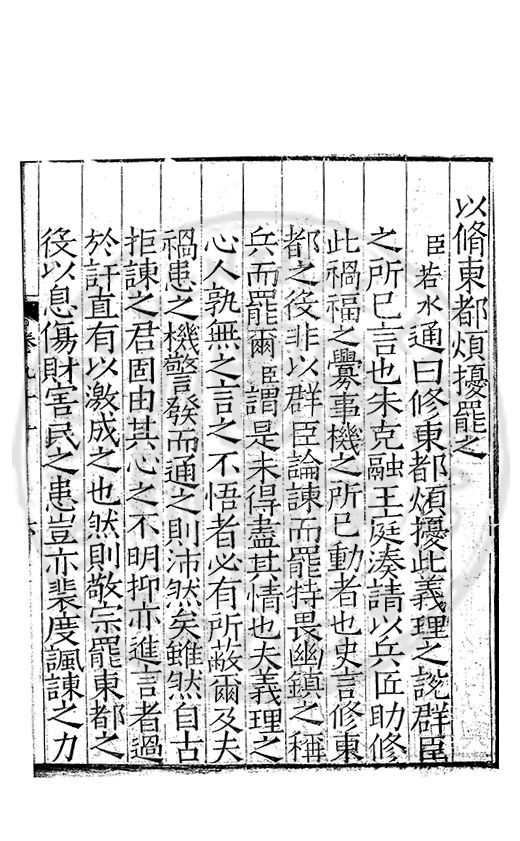 以脩東都煩擾罷之
臣若水通曰修東都煩擾此義理之説群臣
之所已言也朱克融王庭湊請以兵匠助修
此禍福之釁事機之所已動者也史言修東
都之役非以群臣論諫而罷特畏幽鎮之稱
兵而罷爾臣謂是未得盡其情也夫義理之
心人孰無之言之不悟者必有所蔽爾及夫
禍患之機警發而通之則沛然矣雖然自古
拒諫之君固由其心之不明抑亦進言者過
於訐直有以激成之也然則敬宗罷東都之
役以息傷財害民之患豈亦裴度諷諫之力